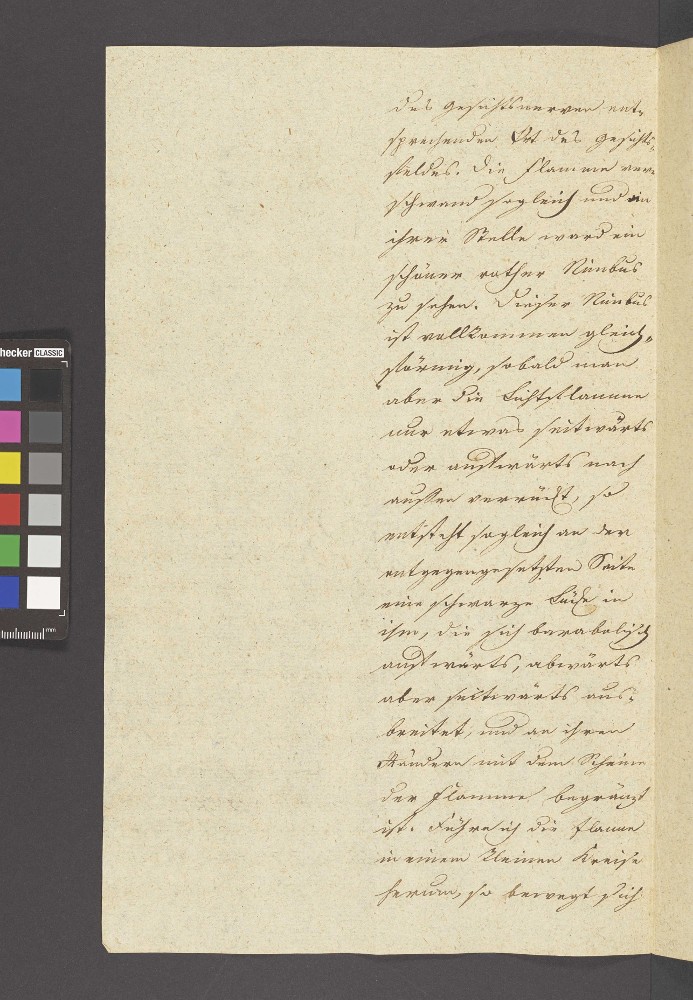 des Gesichtsnerven ent-
sprechenden Ort des Gesichts-
feldes. Die Flamme ver-
schwand sogleich und an
ihrer Stelle ward ein
schöner rother Nimbus
zu sehen. Dieser Nimbus
ist vollkommen gleich-
förmig, sobald man
aber die Lichtflamme
nur etwas seitwärts
oder aufwärts nach
aussen verrückt, so
entsteht sogleich an der
entgegengesetzten Seite
eine schwarze Lücke in
ihm, die sich barabolisch
aufwärts, abwärts
aber seitwärts aus-
breitet, und an ihren
Rändern mit dem Scheine
der Flamme begränzt
ist. Führe ich die Flamme
in einem kleinen Kreise
herum, so bewegt sich
hecker CLASSIC
mm